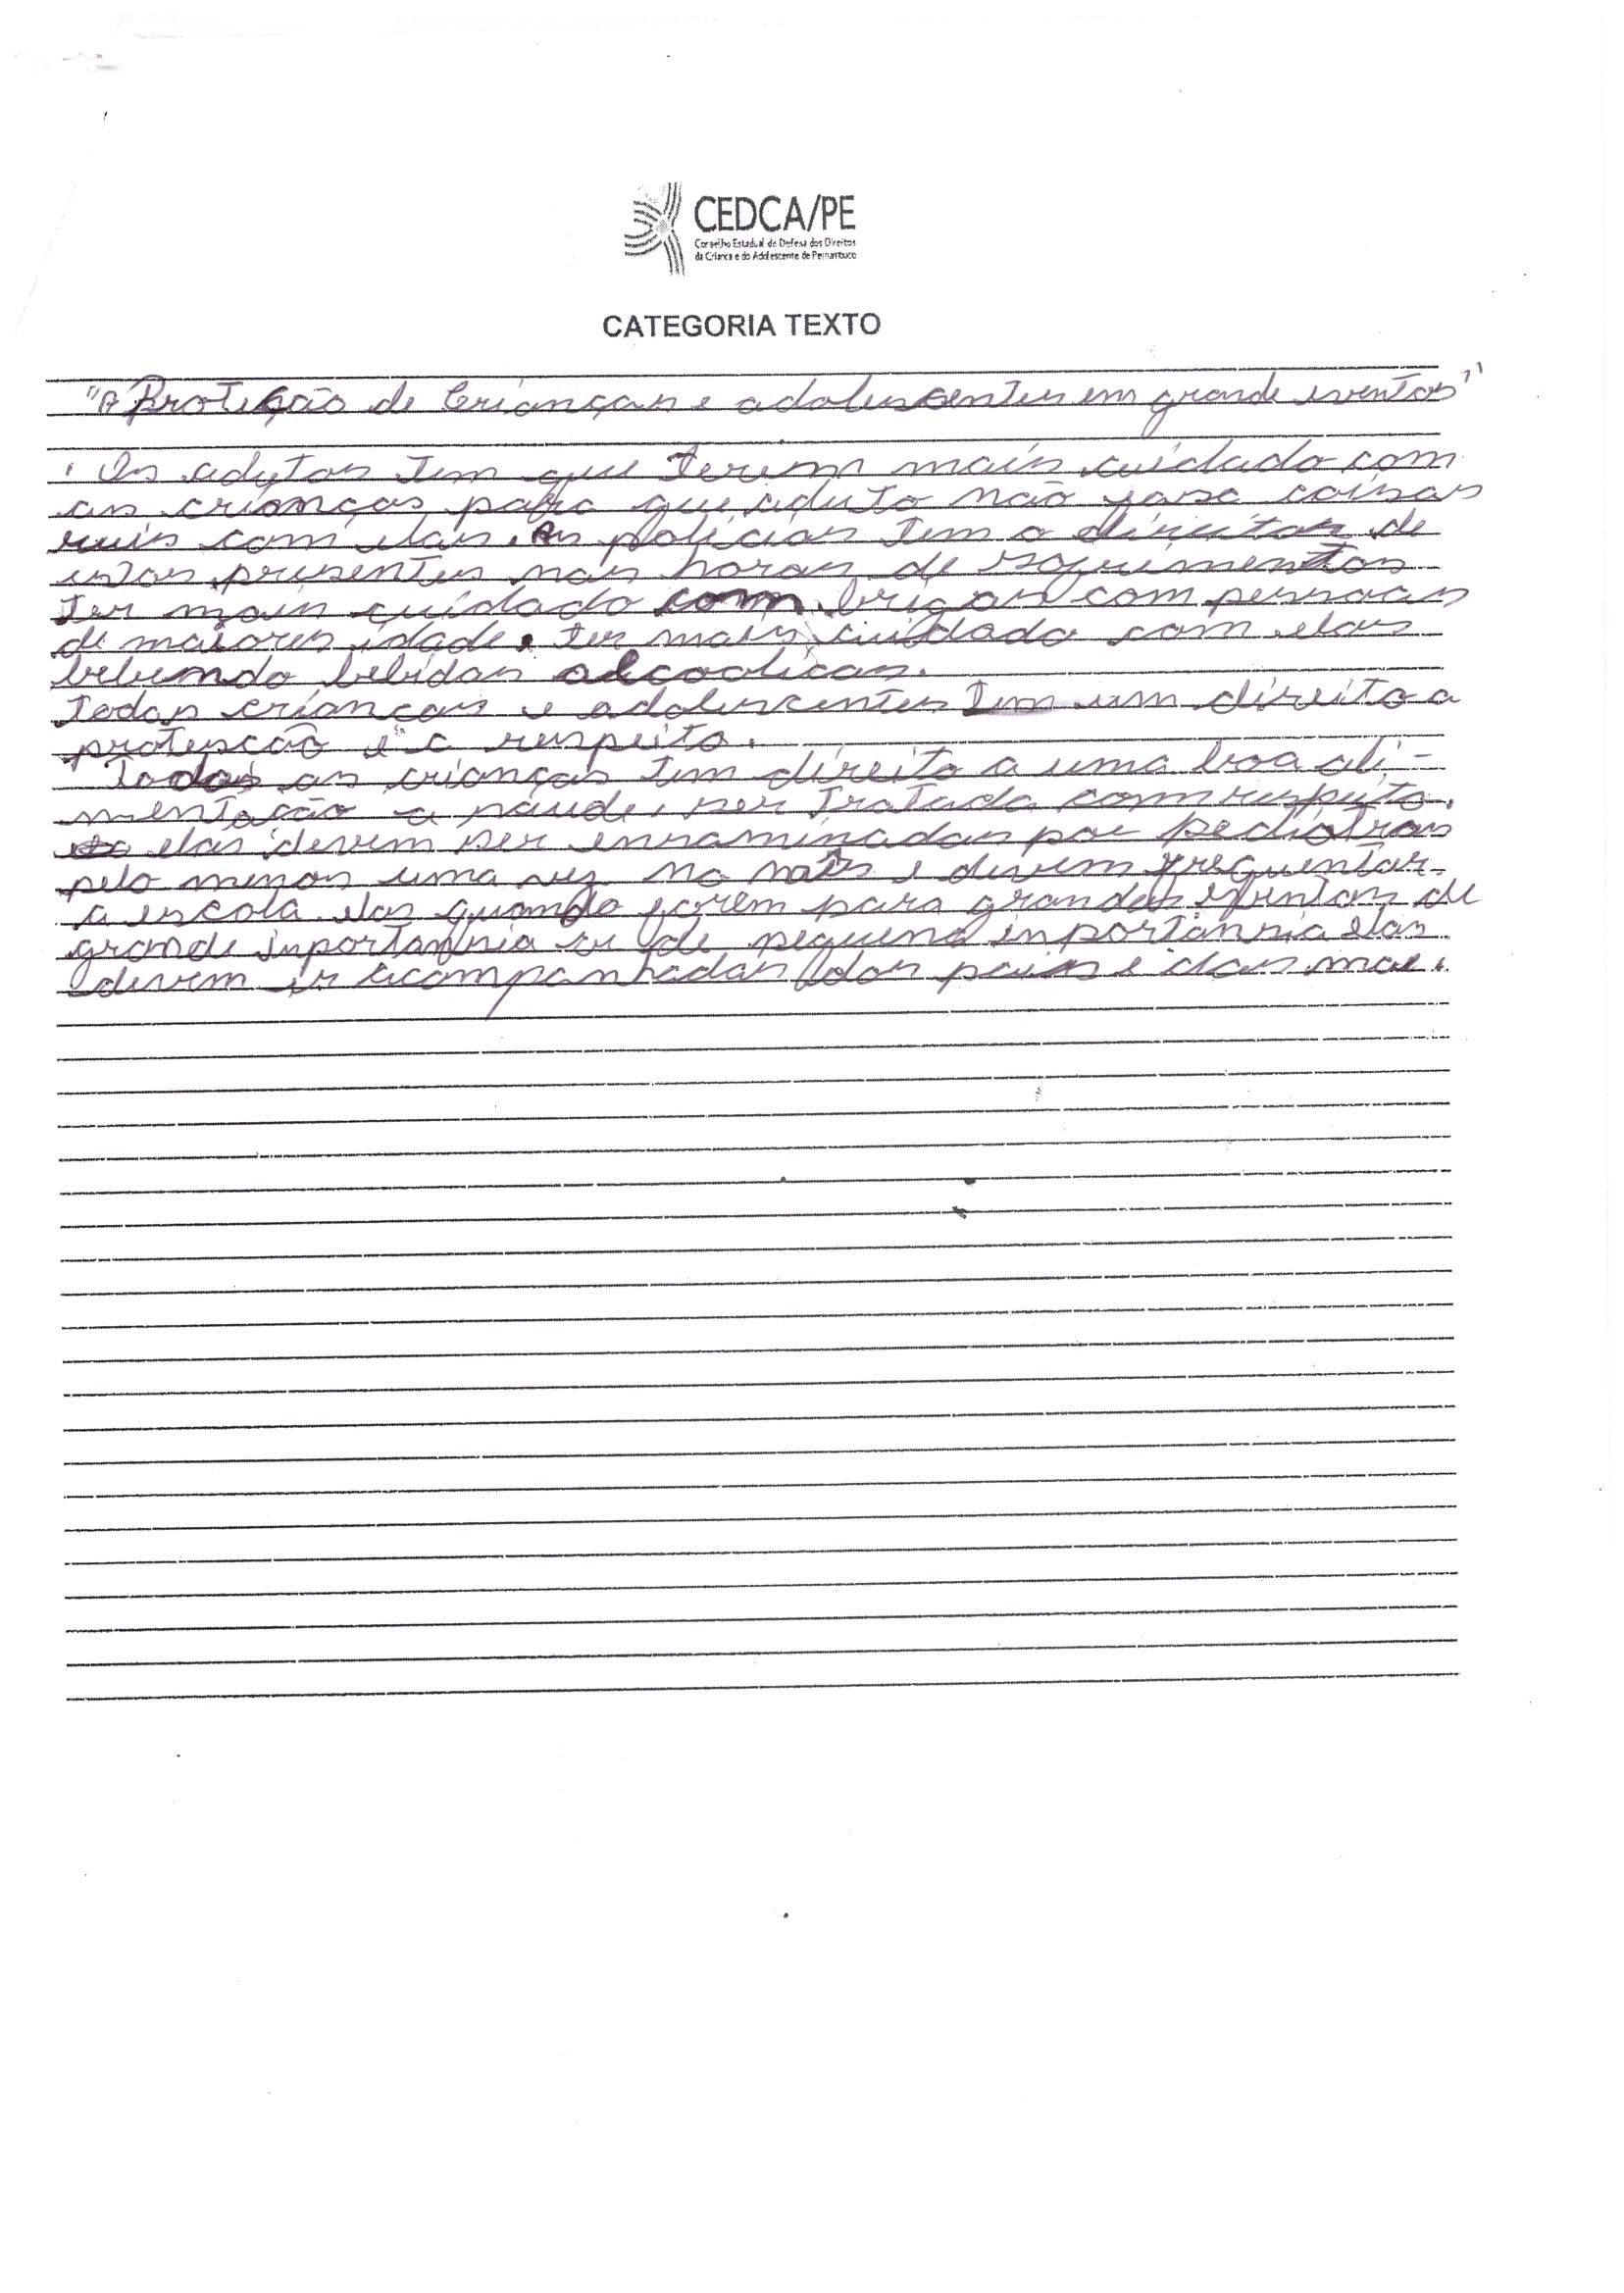 CEDCA/PE
Conselho Estadual de Defesa dos Direitos
da Criança e do Adolescente de Pernambuco
CATEGORIA TEXTO
"A Proteção de Crianças e adolescentes em grande eventos"
. Os adutos tem que terem mais cuidado com
as crianças para que aduto não fasa coisas
ruis com elas. As policias tem o direitos de
estas presentes nas horas de sofrimentos
Ter mais cuidado com brigas com pessoas
de maiores idade. Ter mais cuidado com elas
bebendo bebidas alcoolicas.
Todas crianças e adolescentes tem um direito a
protescão e a respeito.
Todas as crianças tem direito a uma boa ali-
mentação a saúde, ser tratada com respeito.
elas devem ser ensaminadas por pediatras
pelo menos uma vez no mês e devem frequentar
a escola elas quando forem para grandes eventos de
grande inportansia ou de pequena inportânsia elas
devem ir acompanhadas dos pais e das mãe.